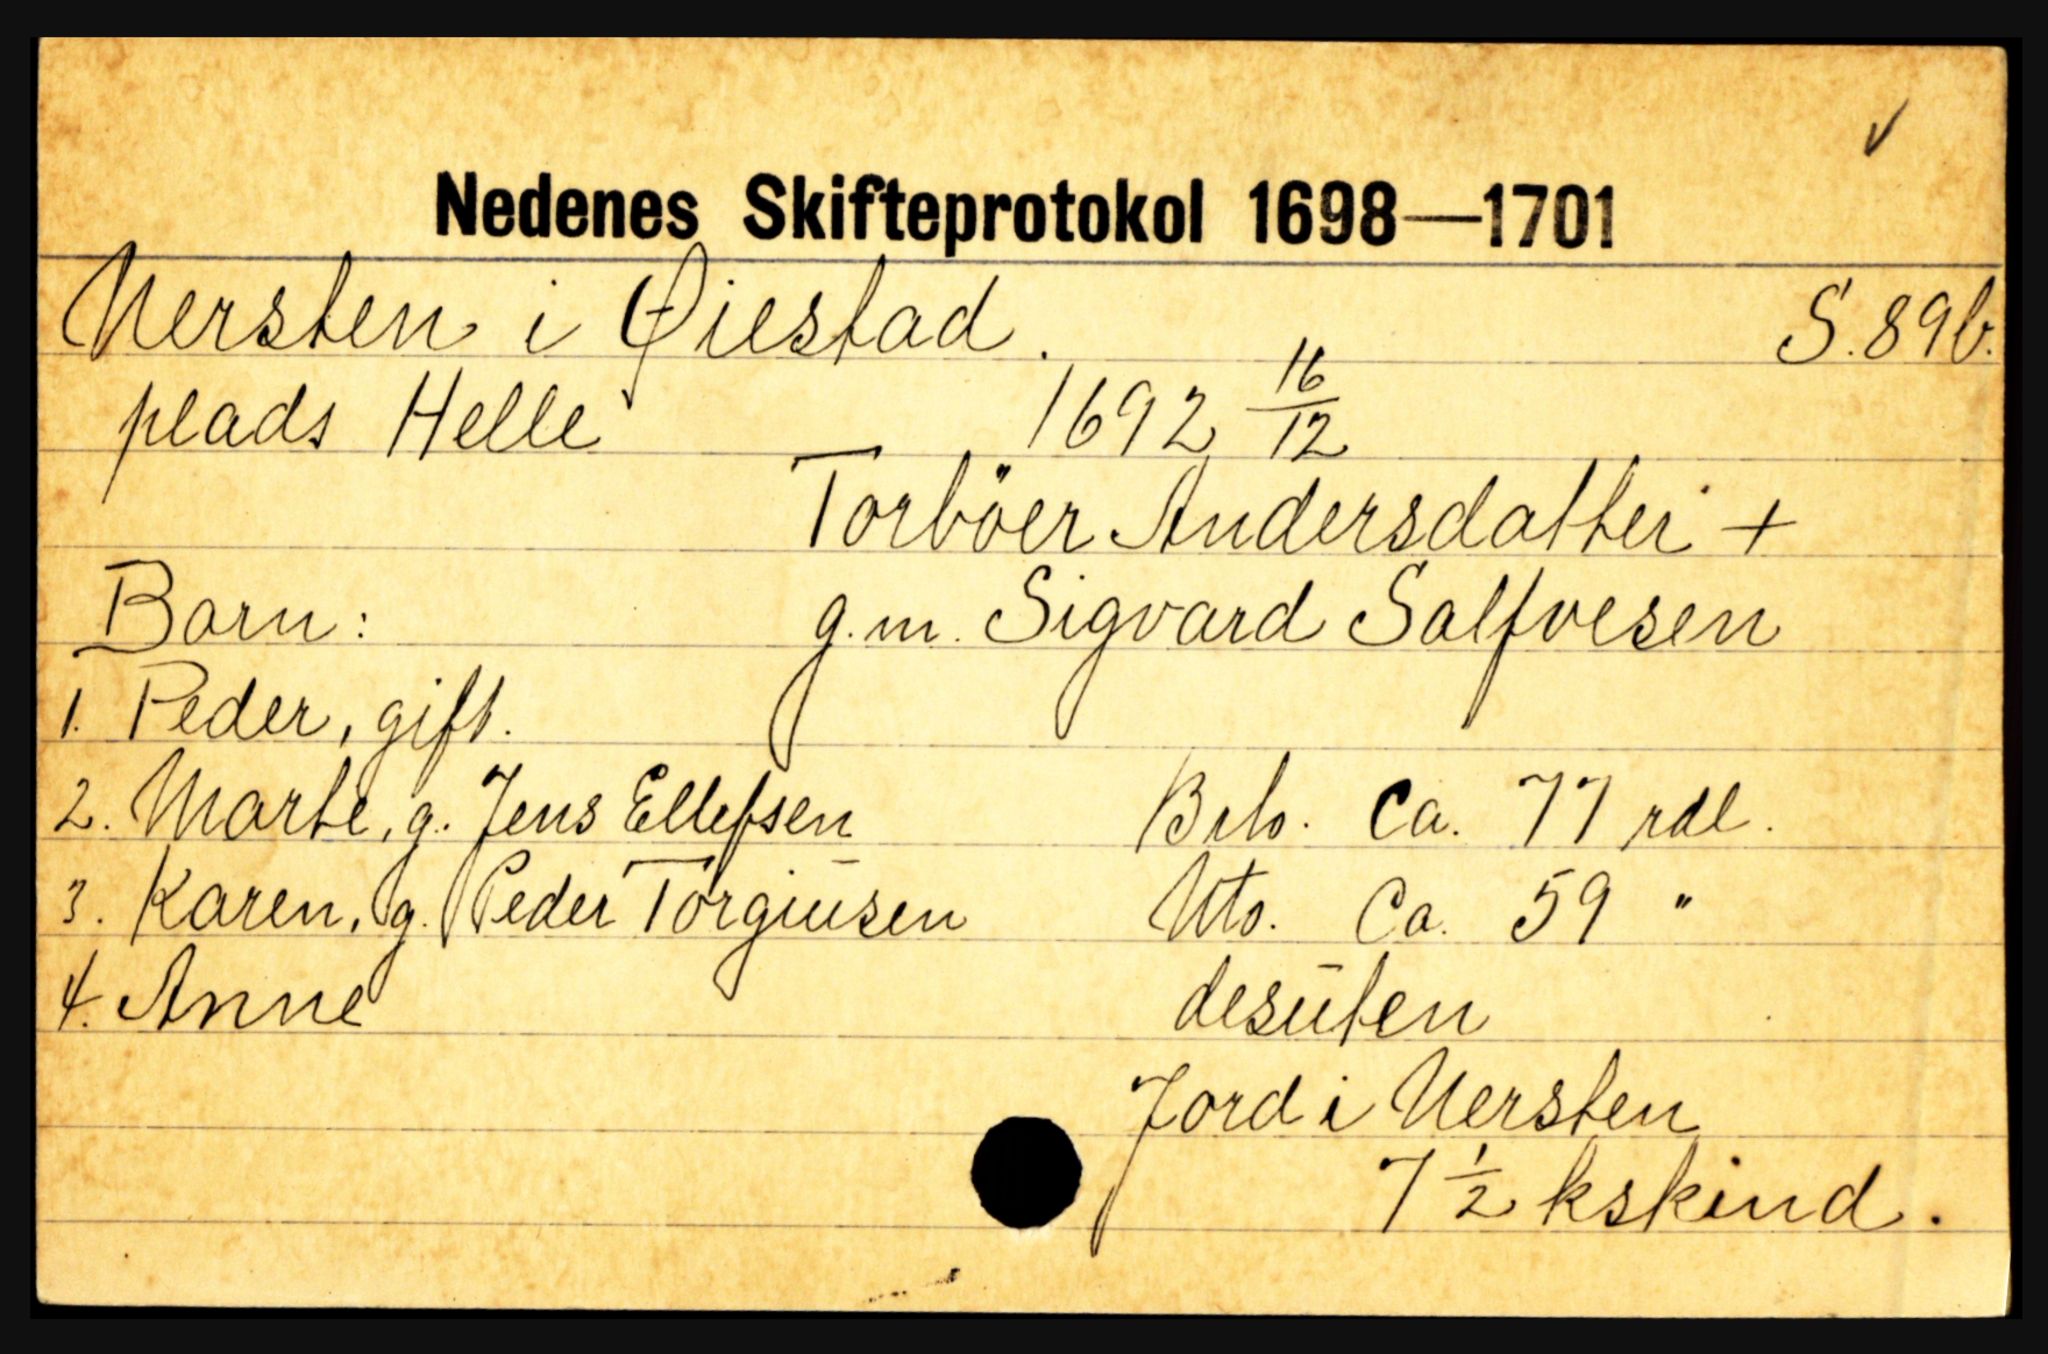 ✓
Nedenes Skifteprotokol 1698—1701
Nersten i Øiestad. S. 89b.
plads Helle 1692 16/12
Torböer Andersdatter +
Born: g.m. Sigvard Salfvesen
1. Peder, gift.
2. Marte, g. Jens Ellefsen Brto. Ca. 77 rdl.
3. Karen, g. Peder Torgiusen Nto. Ca. 59 "
4. Anne desuten
Jord i Nersten
7 1/2 kskind.